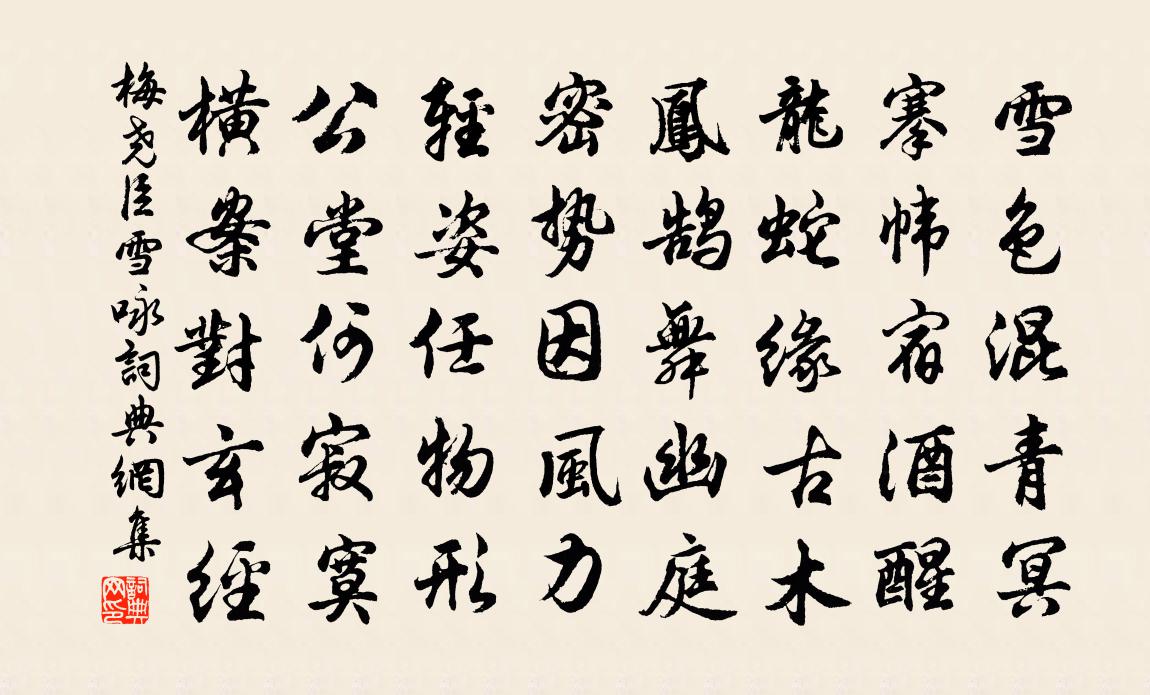 雪色混青冥
搴帏宿酒醒
龍蛇缘古木
鳳鹄舞幽庭
密势因風力
輕姿任物形
公堂何寂寞
横案對玄经
梅尧臣雪咏詞典網集
詞典网印